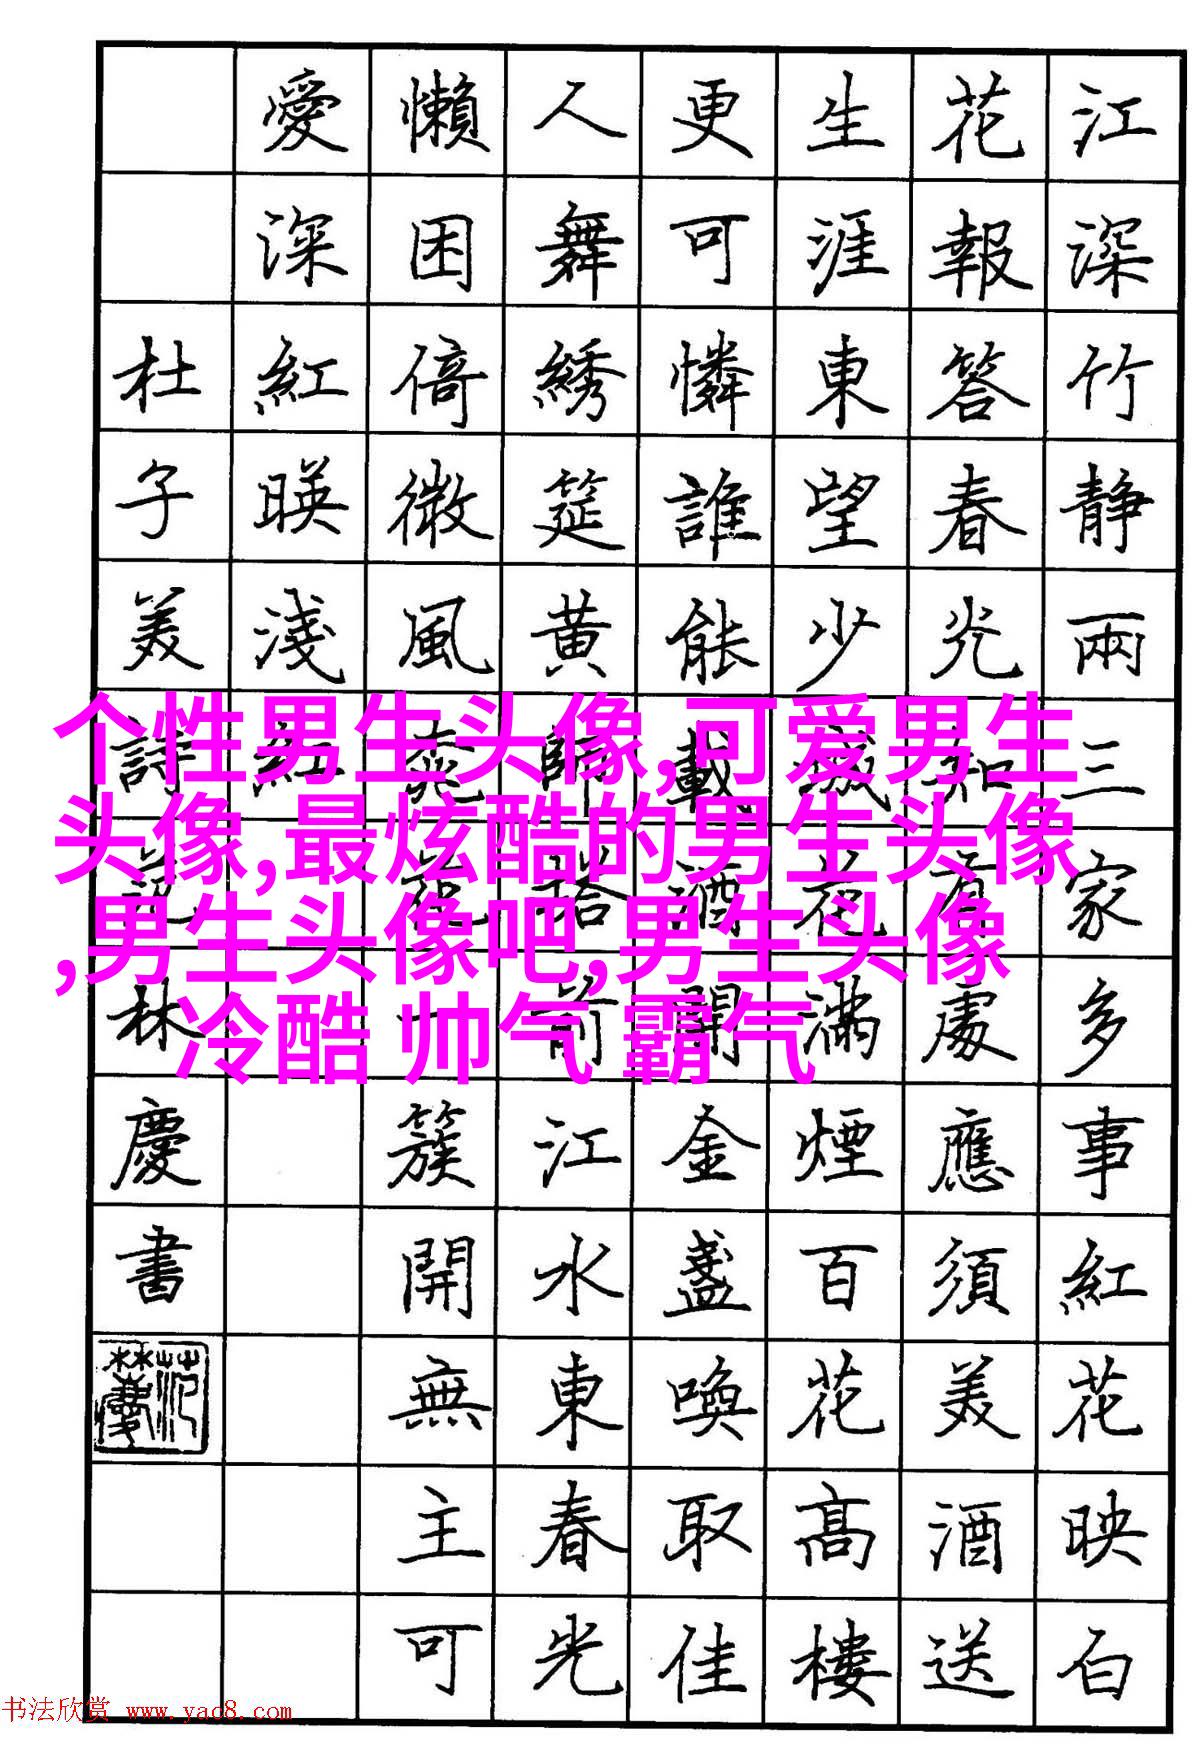 江深竹静兩三家多事紅花映白
花報答春光知有處應須美酒送
生涯東望少城花滿煙百花高樓
更可憐誰能載酒開金盞喚取佳
人舞綉筵黄師塔前江水東春光
懶困倚微風桃花一簇開無主可
愛深紅暎淺紅
杜子美詩范林慶書
个性男生头像,可爱男生
头像,最炫酷的男生头像
,男生头像吧,男生头像
冷酷 帅气 霸气
书法欣赏 www.yac8.com